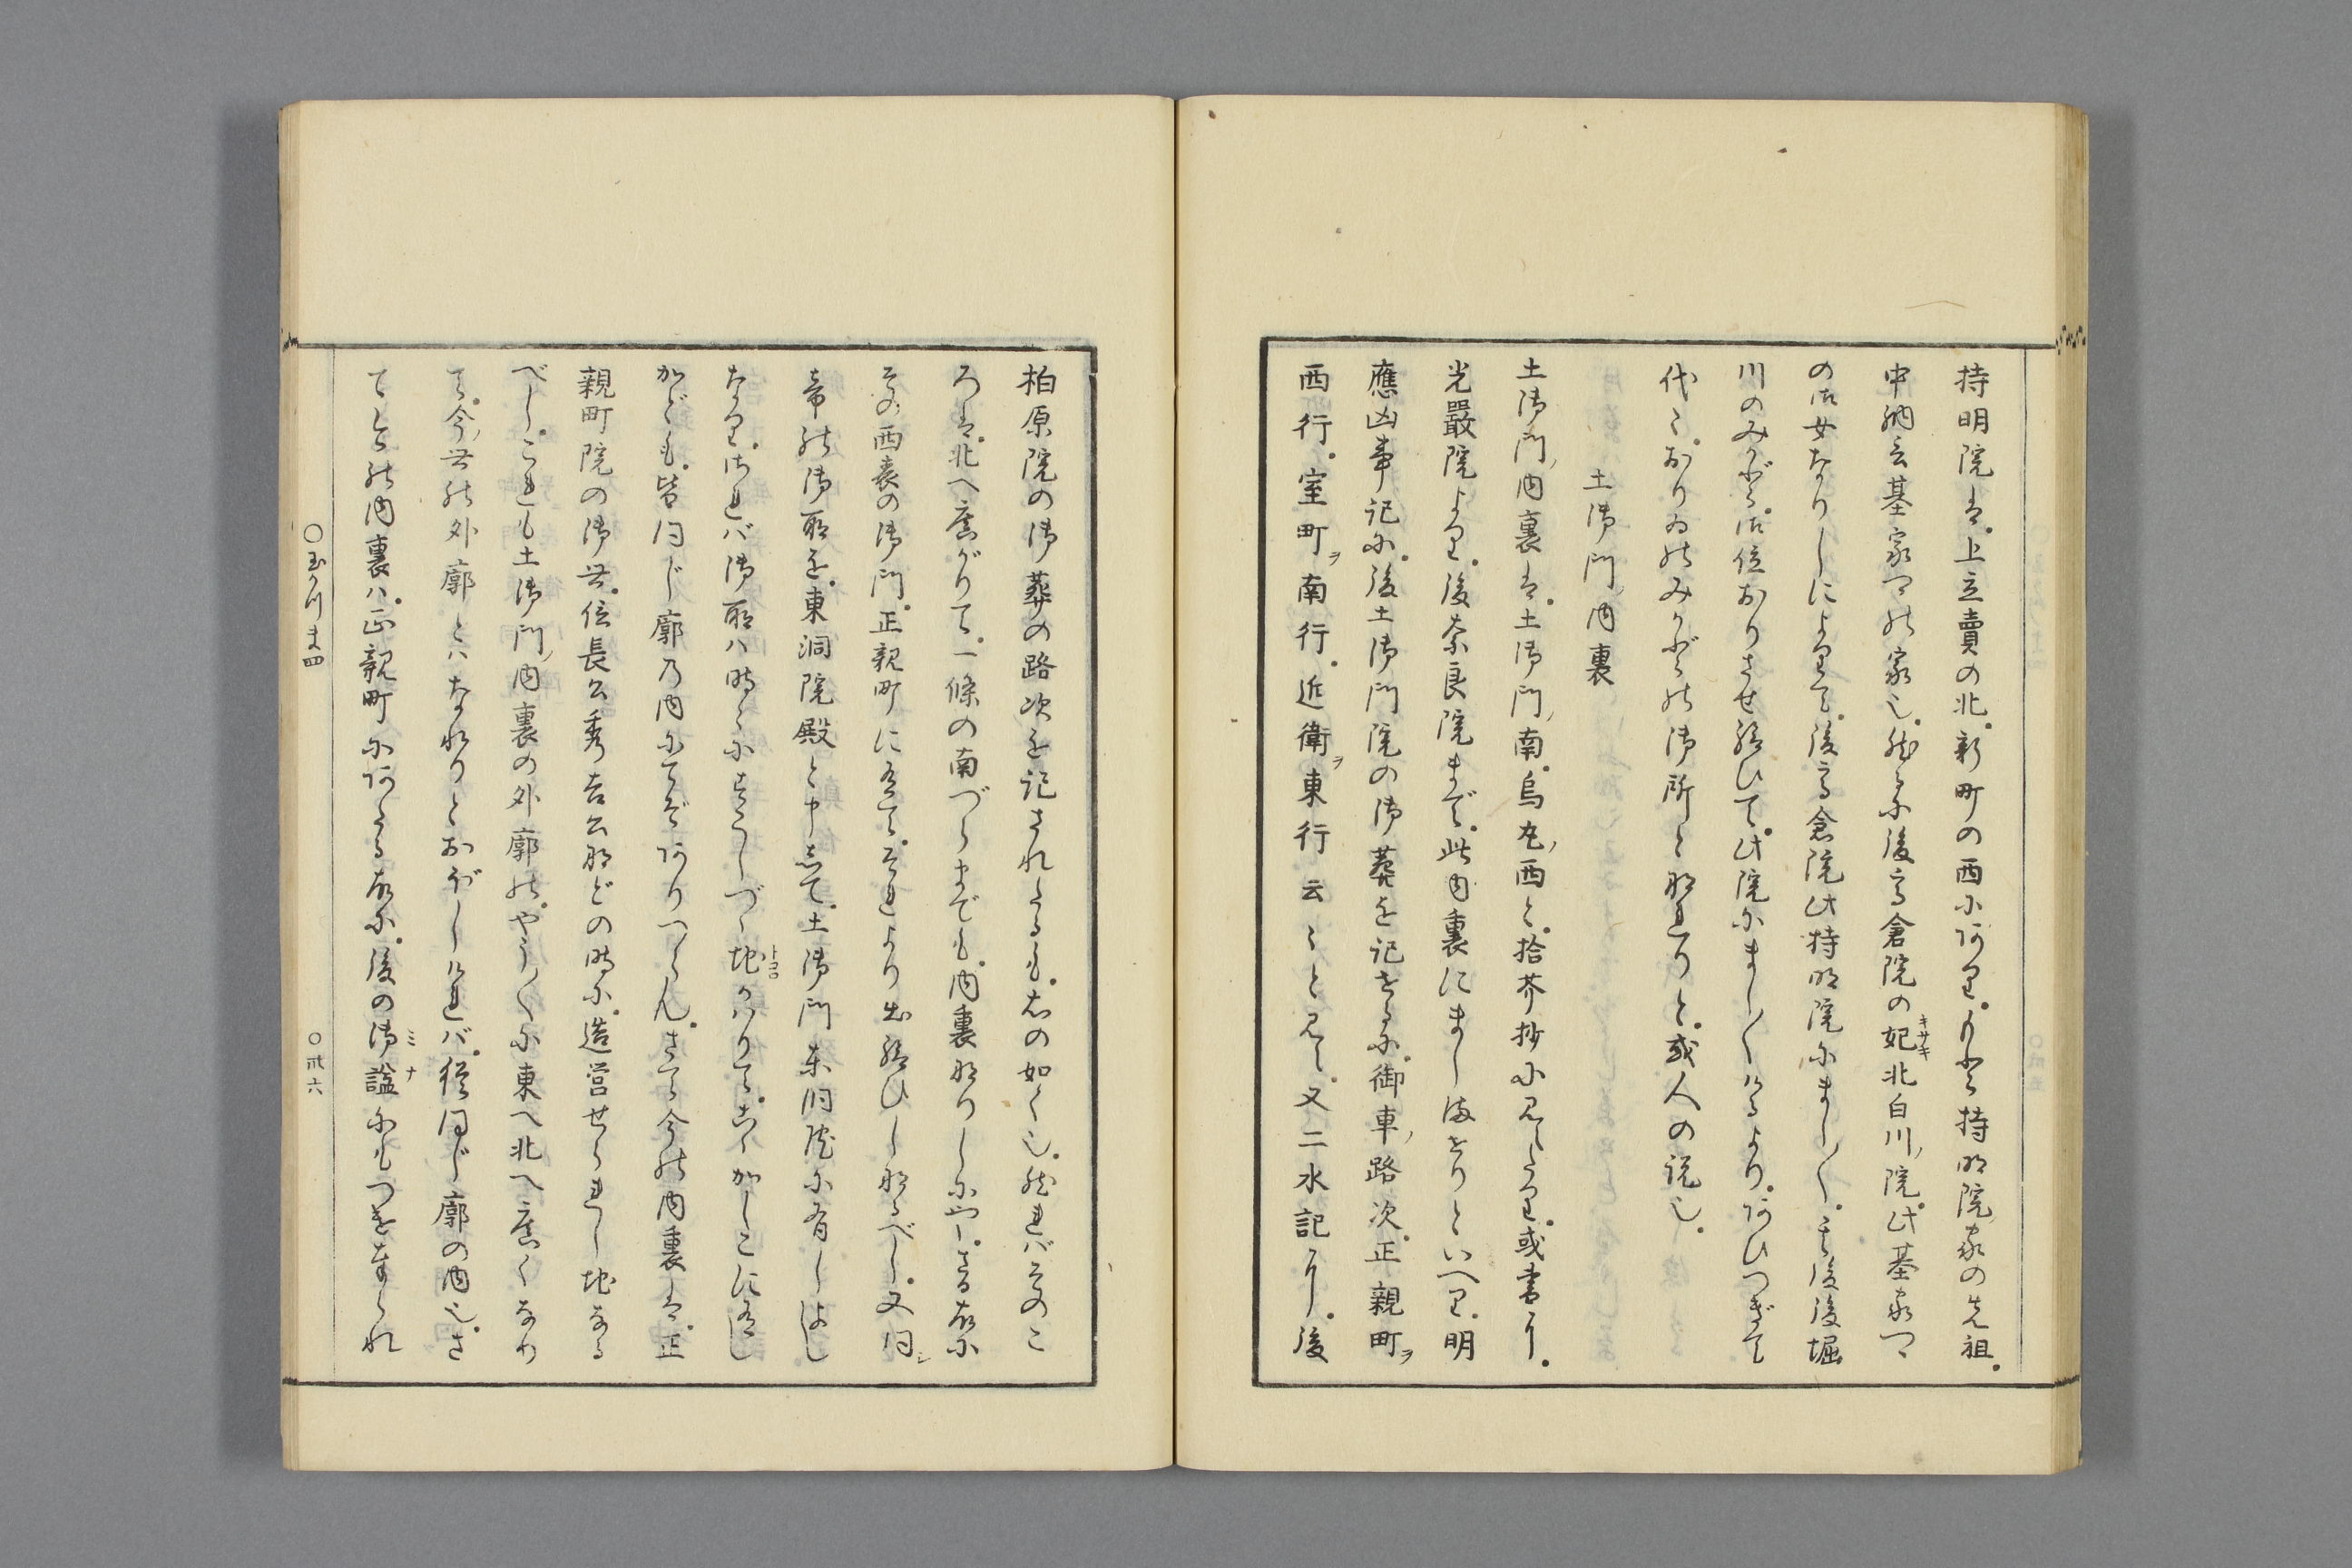 持明院は。上立賣の北。新町の西にあり。もと持明院家の先祖。
中納言基家卿の家也。然るに後高倉院の妃北白川ノ院。此基家卿
の御女なりしによりて。後高倉院此持明院にまし〳〵。其後後堀
川のみかど。御位おりさせ給ひて。此院にまし〳〵けるより。あひつぎて
代々。おりゐのみかどの御所と那れりと。或人の説也。
土御門ノ内裏
土御門ノ内裏は。土御門ノ南。烏丸ノ西と。拾芥抄に見えたり。或書に。
光嚴院より。後奈良院まで。此内裏にまし給へりといへり。明
應凶事記に。後土御門院の御葬を記せるに。御車ノ路次。正親町ヲ
西行。室町ヲ南行。近衛ヲ東行云々と見え。又二水記に。後
柏原院の御葬の路次を記されたるも。右の如く也。然れバそのこ
ろは。北へ廣がりて。一條の南づらまでも。内裏なりしにや。さる故に
その西裏の御門。正親町に有て。それより出給ひしなるべし。又同シ
帝の御所を。東洞院殿と申して。土御門東洞院に有しよし
なり。されバ御所ハ時々にすこしづゝ地かはりて。こゝかしこに有し
かども。皆同じ廓の内にてぞありつらん。さて今の内裏は。正
親町院の御世。信長公秀吉公などの時に。造営せられし地なる
べし。これも土御門ノ内裏の外廓の。やう〳〵に東へ北へ廣くなり
て。今ノ世の外廓とハなれりとおぼしけれバ。猶同じ廓の内也。さ
てもとの内裏ハ。正親町にあたる故に。後の御謚にもつけ奉られ
トコロ
キサキ
ミナ
〇玉かつま四
〇廿六